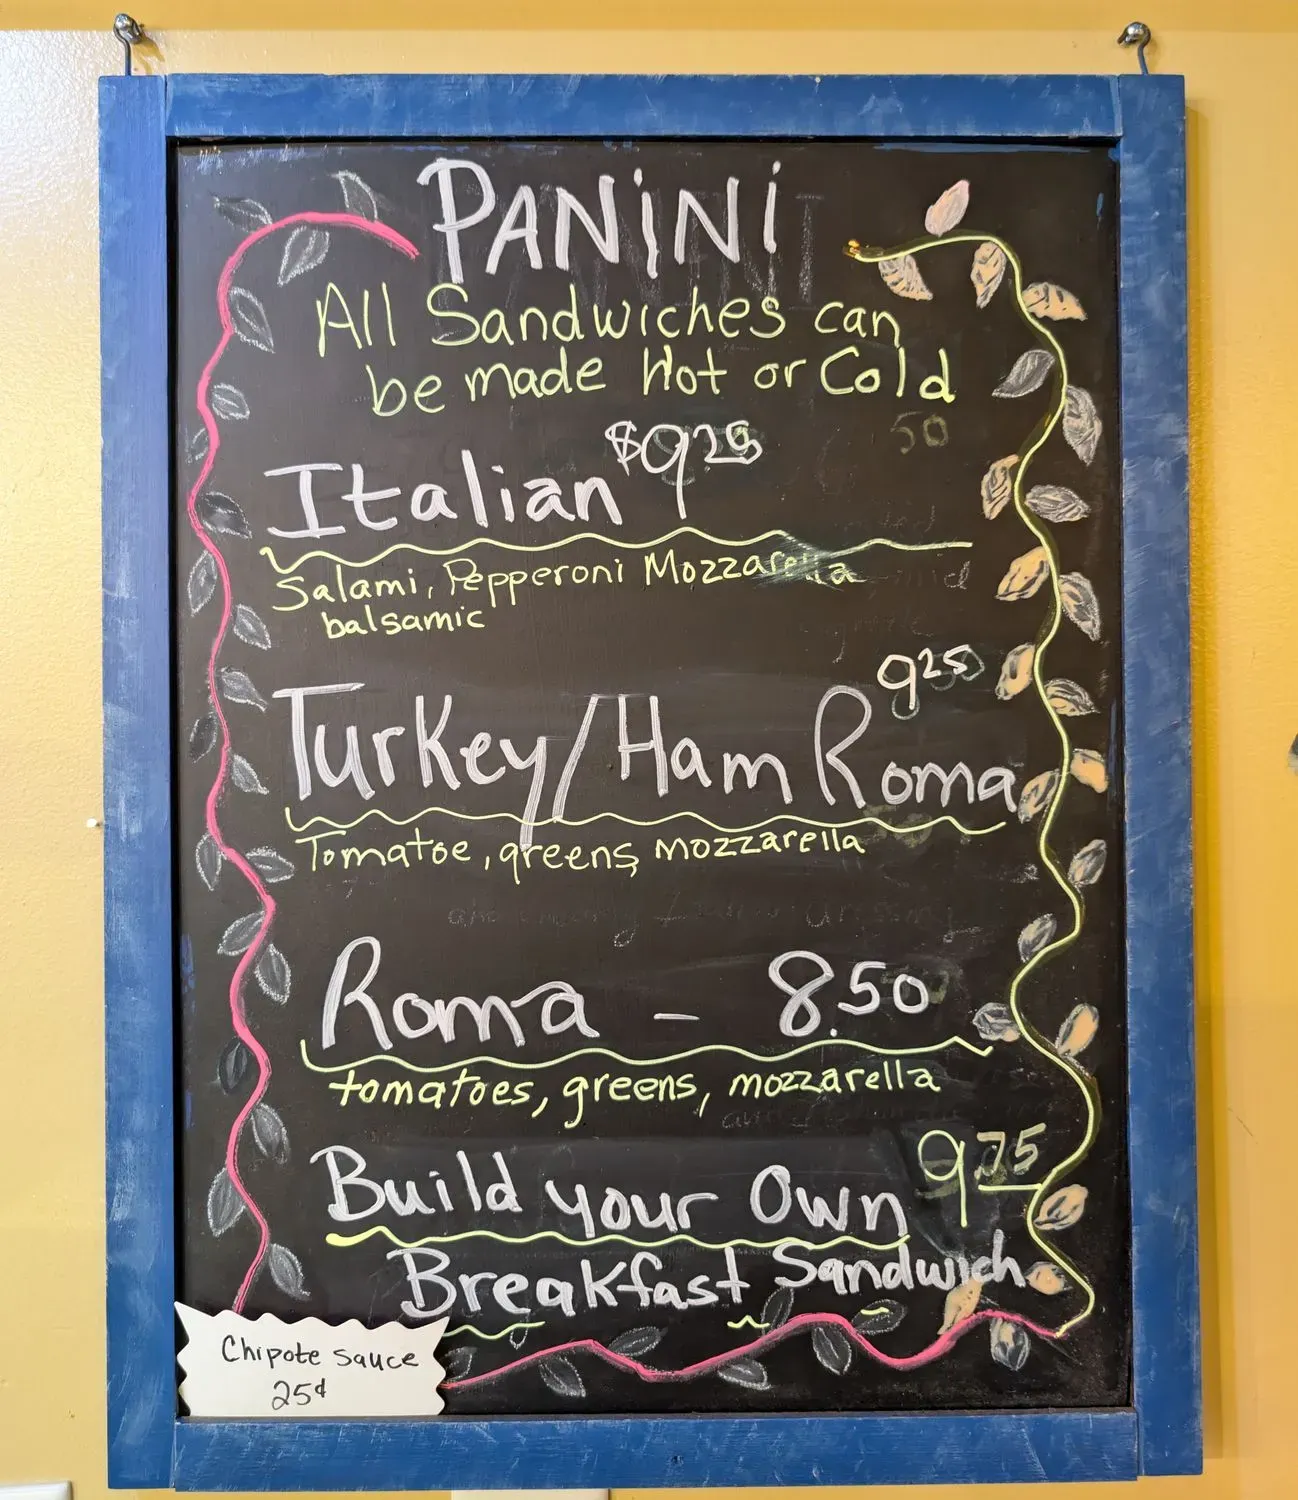 PANiNi
All Sandwiches can
be made Hot or Cold
Italian $9.25
Salami, Pepperoni Mozzarella
balsamic
9.25
Turkey/Ham Roma
Tomatoe, greens, mozzarella
Roma - 8.50
tomatoes, greens, mozzarella
Build your Own 9.75
Breakfast Sandwich
Chipotle sauce
25¢